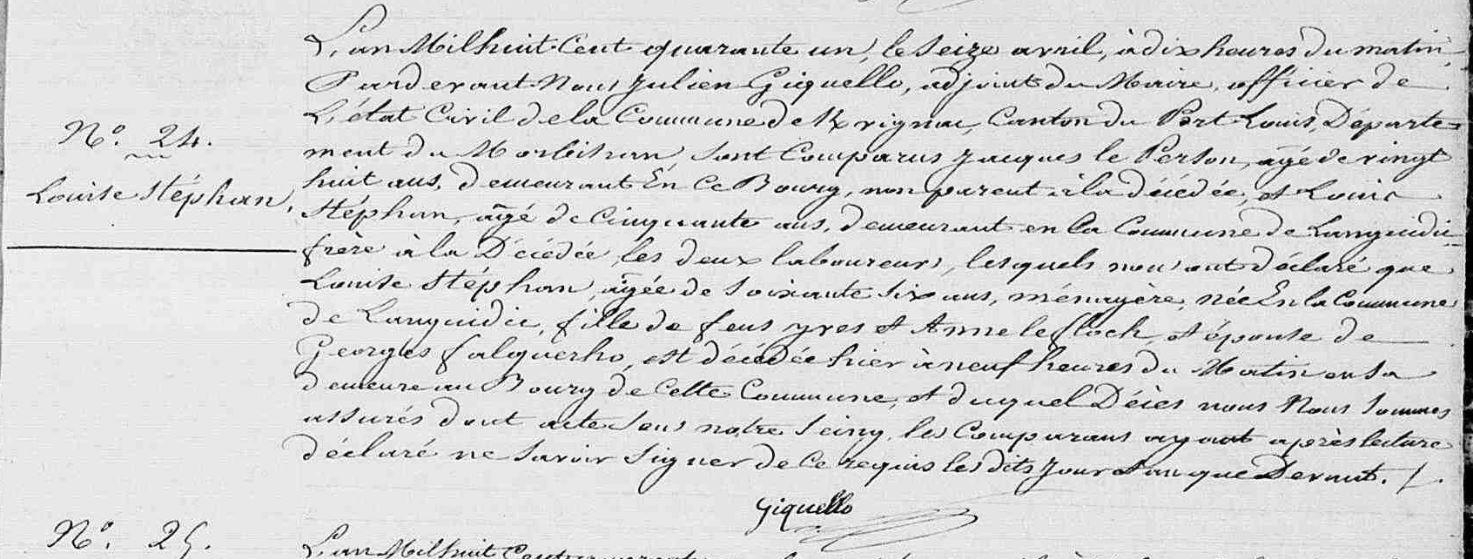 L'an Mil huit Cent quarante un, le Seize avril, à dix heures du matin,
Pardevant Nous Julien Giquello, adjoint du Maire, officier de
L'état Civil de la Commune de Kvrignac, Canton du Port Louis, Départe-
N.° 24.
ment du Morbihan, sont Comparus Jacques le Person, âgé de vingt
huit ans, demeurant En Ce Bourg, non parent à la décédée, et Louis
Louise Stéphan,
Stéphan, âgé de Cinquante ans, demeurant en la Commune de Languidic
frère à la Décédée, les deux laboureurs, lesquels nous ont déclaré que
Louise Stéphan, âgée de Soixante Six ans, ménagère, née En la Commune
de Languidic, fille de feus yves et Anne le floch, et épouse de
Georges falquerho, est décédée hier à neuf heures du Matin en sa
demeure au Bourg de Cette Commune, et duquel Décès nous Nous Sommes
assurés dont acte Sous notre Seing, les Comparans ayant après lecture
déclaré ne Savoir Signer de Ce requis les dits Jour et an que Devant. /.
Giquello
N.° 25.
L'an Mil huit Cent